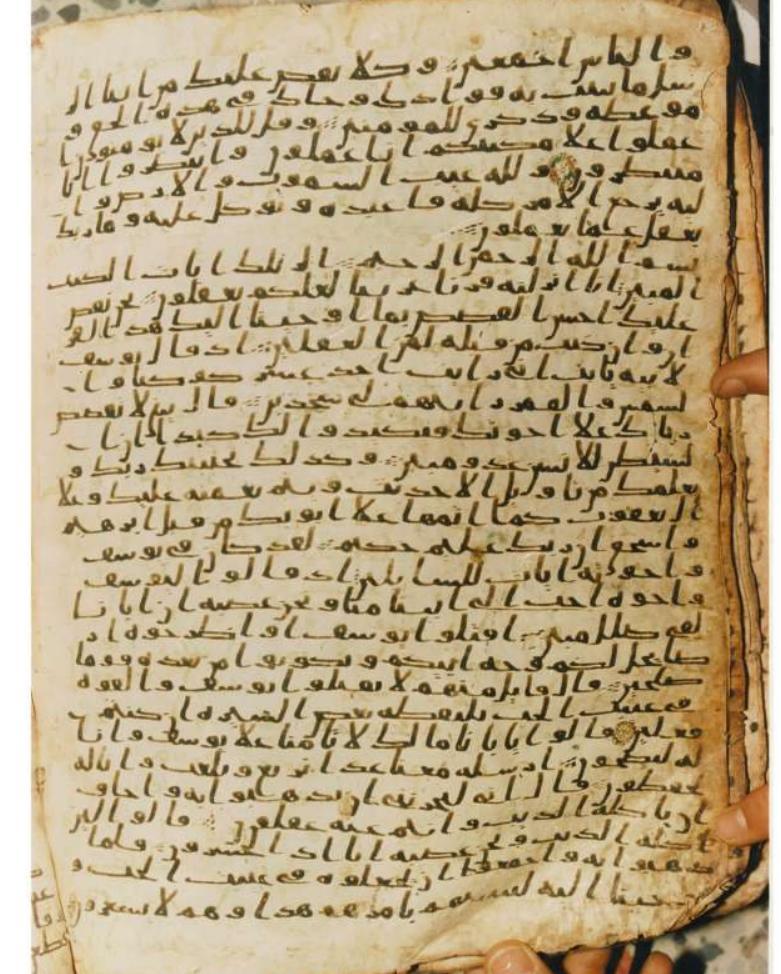 والناس اجمعين وكلا نقص عليك من انبا الر
سل ما نثبت به فوادك وجاك في هذه الحق و
موعظه وذكرى للمومنين وقل للذين لا يومنون ا
عملوا علا مكنتكم انا عملون وانتظروا انا
منتظرون ولله غيب السموت والارض وا
ليه يرجع الامر كله فاعبده وتوكل عليه وما ربك
بغفل عما تعملون
بسم الله الرحمن الرحيم الر تلك ايات الكتب
المبين انا انزلنه قرنا عربيا لعلكم تعقلون نحن نقص
عليك احسن القصص بما اوحينا اليك هذا القر
ان وان كنت من قبله لمن الغفلين اذ قال يوسف
لابيه يابت اني رايت احد عشر كوكبا وا
لشمس والقمر رايتهم لي سجدين قال يبني لا تقصص
رياك علا اخوتك فيكيدوا لك كيدا ان ا
لشيطن للانسن عدو مبين وكذلك يجتبيك ربك و
يعلمك من تاويل الاحديث ويتم نعمته عليك وعلا
ال يعقوب كما اتمها علا ابويك من قبل ابرهيم
واسحق ان ربك عليم حكيم لقد كان في يوسف
واخوته ايات للسايلين اذ قالوا ليوسف
واخوه احب الى ابينا منا ونحن عصبه ان ابانا
لفي ضلل مبين اقتلوا يوسف او اطرحوه ار
ضا يخل لكم وجه ابيكم وتكونوا من بعده قوما
صلحين قال قايل منهم لا تقتلوا يوسف والقوه
في غيبت الجب يلتقطه بعض السيره ان كنتم
فعلين قالوا يابانا ما لك لا تامنا علا يوسف وانا
له لنصحون ارسله معنا غدا نرتع ونلعب وانا له
لحفظون قال اني ليحزنني ان تذهبوا به واخاف
ان ياكله الذيب وانتم عنه غفلون قالوا لين
اكله الذيب ونحن عصبه انا اذا لخسرون فلما
ذهبوا به واجمعوا ان يجعلوه في غيبت الجب و
اوحينا اليه لتنبينهم بامرهم هذا وهم لا يشعرون